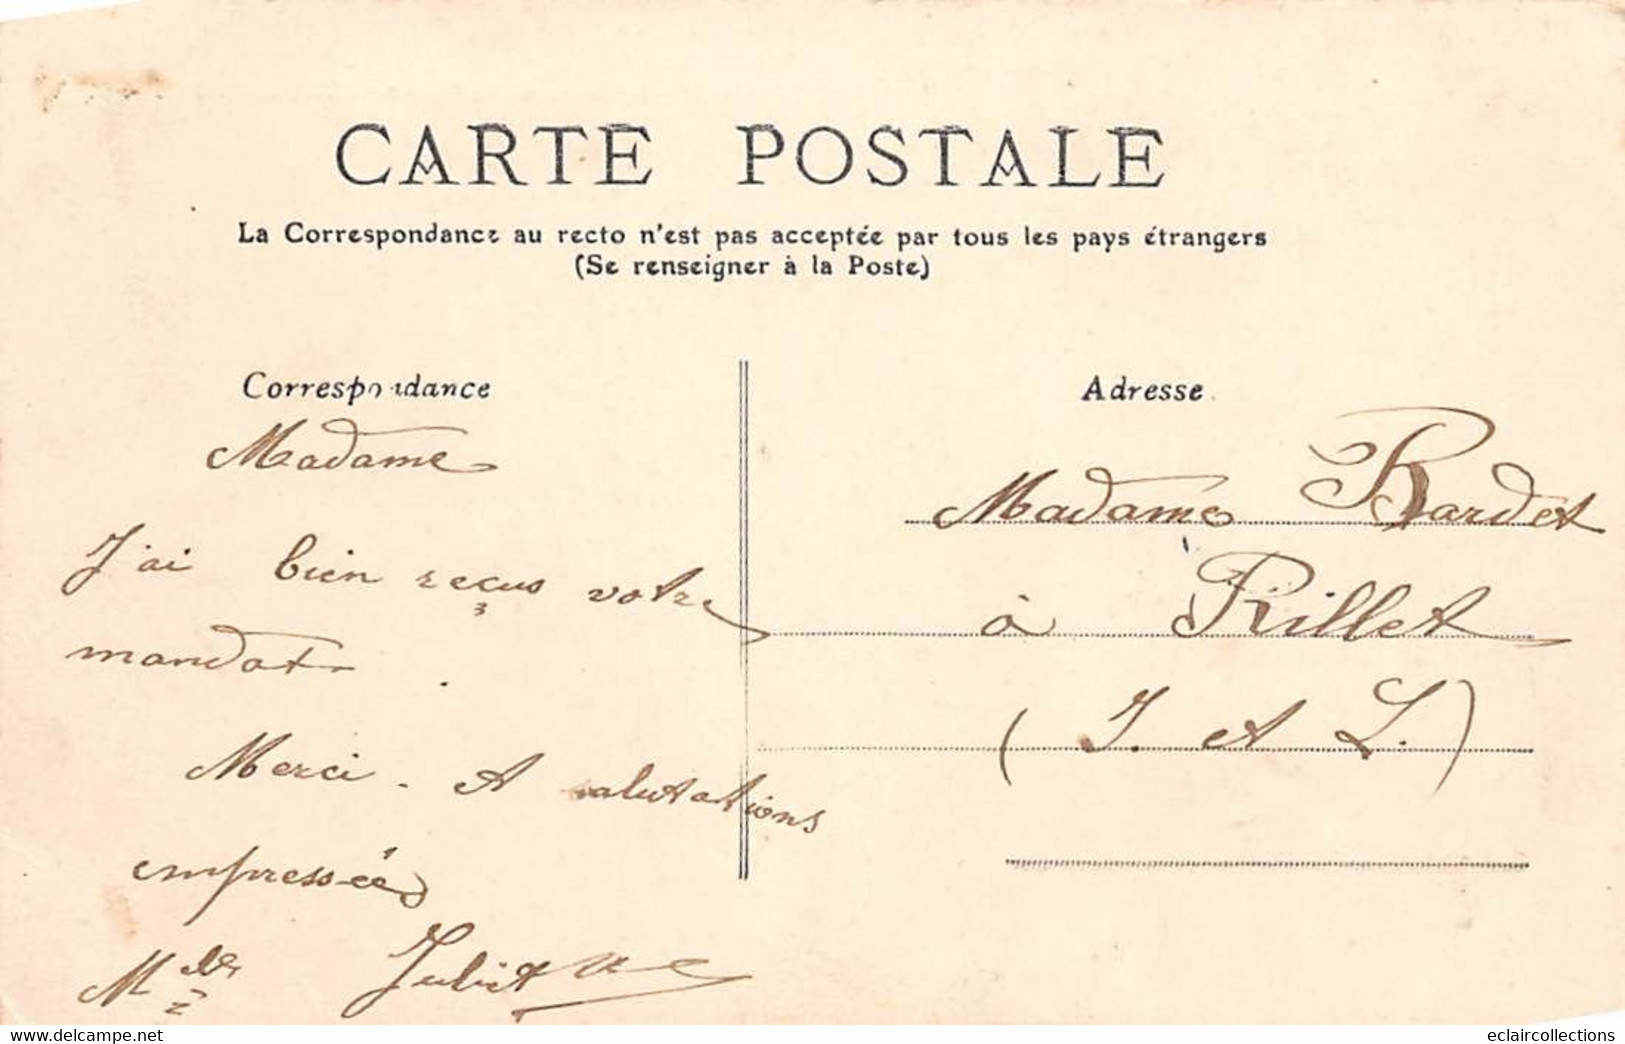 CARTE POSTALE
La Correspondance au recto n'est pas acceptée par tous les pays étrangers
(Se renseigner à la Poste)
Correspondance
Madame
J'ai bien reçus votre
mandat.
Merci. Et salutations
empressées
Juliette
Adresse
Madame Bardet
à Rillet
(I. et L.)
eclaircollections